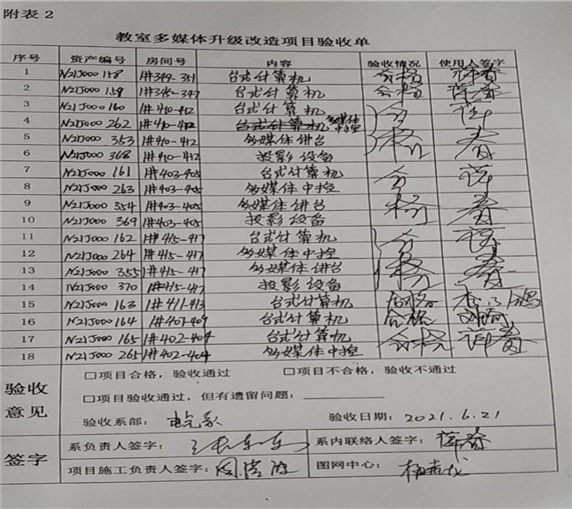 附表2
教室多媒体升级改造项目验收单
序号 资产编号 房间号 内容 验收情况 使用人签字
1 N21J000158 1#349-351 台式计算机 合格
2 N21J000159 1#345-347 台式计算机 合格
3 N21J000160 1#410-412 台式计算机
4 N21J000262 1#410-412 台式计算机 多媒体中控
5 N21J000353 1#410-412 多媒体讲台
6 N21J000368 1#410-412 投影设备
7 N21J000161 1#403-405 台式计算机 合
8 N21J000263 1#403-405 多媒体中控
9 N21J000354 1#403-405 多媒体讲台 格
10 N21J000369 1#403-405 投影设备
11 N21J000162 1#415-417 台式计算机 合
12 N21J000264 1#415-417 多媒体中控
13 N21J000355 1#415-417 多媒体讲台 格
14 N21J000370 1#415-417 投影设备
15 N21J000163 1#411-413 台式计算机 合格
16 N21J000164 1#407-409 台式计算机 合格
17 N21J000165 1#402-404 台式计算机 合格
18 N21J000265 1#402-404 多媒体中控
验收意见
□项目合格，验收通过 □项目不合格，验收不通过
□项目验收通过，但有遗留问题：
验收系部： 电气系 验收日期：2021.6.21
签字
系负责人签字： 系内联络人签字：
项目施工负责人签字： 图网中心：